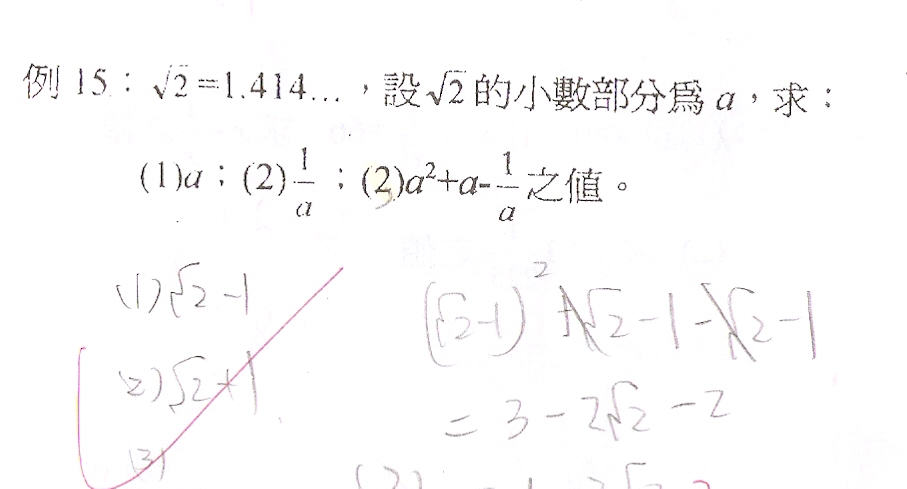 例 15：√2=1.414...，設√2的小數部分爲 a，求：
(1)a；(2)1/a；(2)a²+a-1/a之值。
(1)√2-1
(2)√2+1
(3)
(√2-1)²+√2-1-√2-1
=3-2√2-2